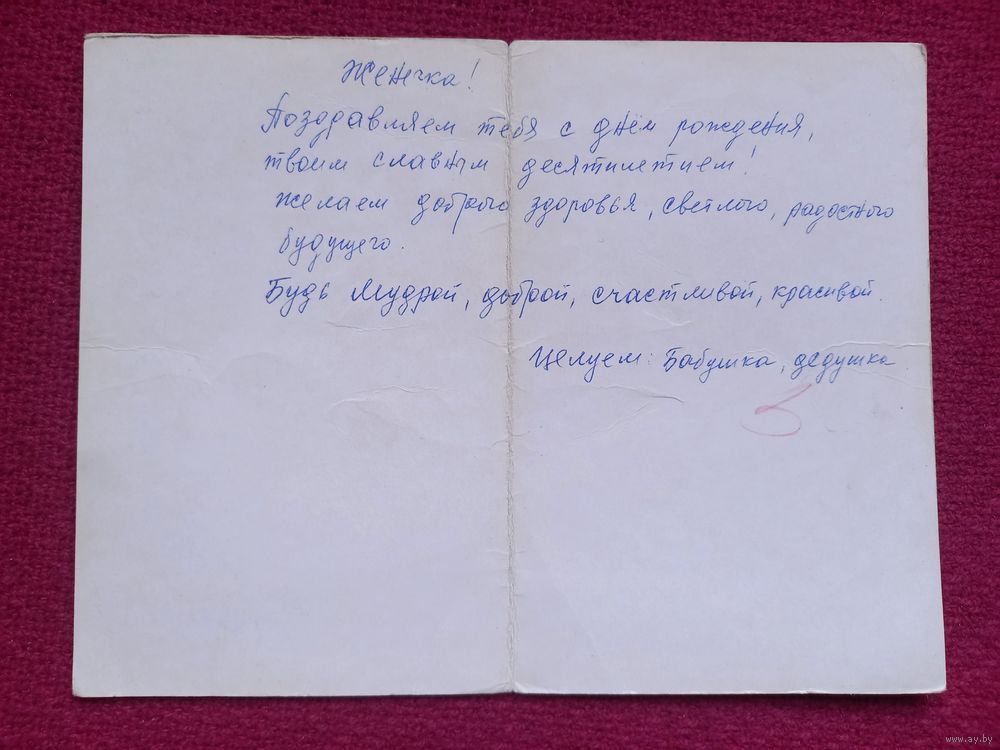 Женечка!
Поздравляем тебя с днём рождения,
твоим славным десятилетием!
Желаем доброго здоровья, светлого, радостного
будущего.
Будь Мудрой, доброй, счастливой, красивой.
Целуем: Бабушка, дедушка
www.ay.by